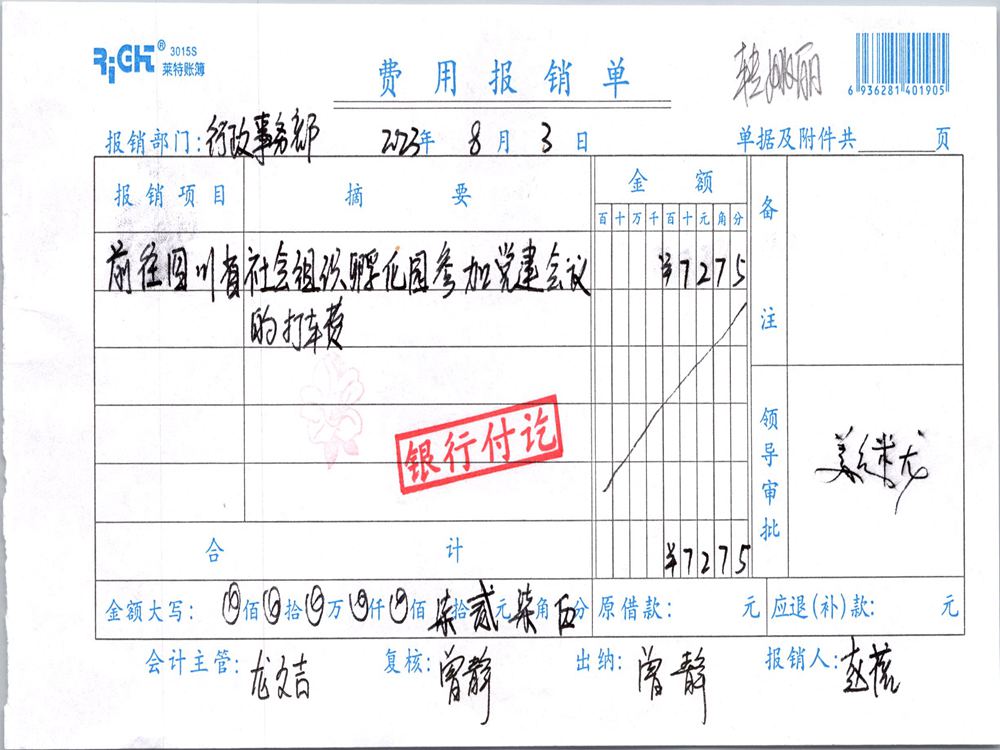 RiCH® 3015S
莱特账簿
费用报销单
6 936281 401905
报销部门:行政事务部 2023年 8月 3日 单据及附件共 页
报销项目 摘要 金额 备注
百十万千百十元角分
前往四川省社会组织孵化园参加党建会议 ¥7275
的打车费
银行付讫
领导审批
合计 ¥7275
金额大写: 佰 拾 万 仟 佰 柒拾贰元柒角伍分 原借款: 元 应退(补)款: 元
会计主管:龙文吉 复核:曾静 出纳:曾静 报销人:赵蓓